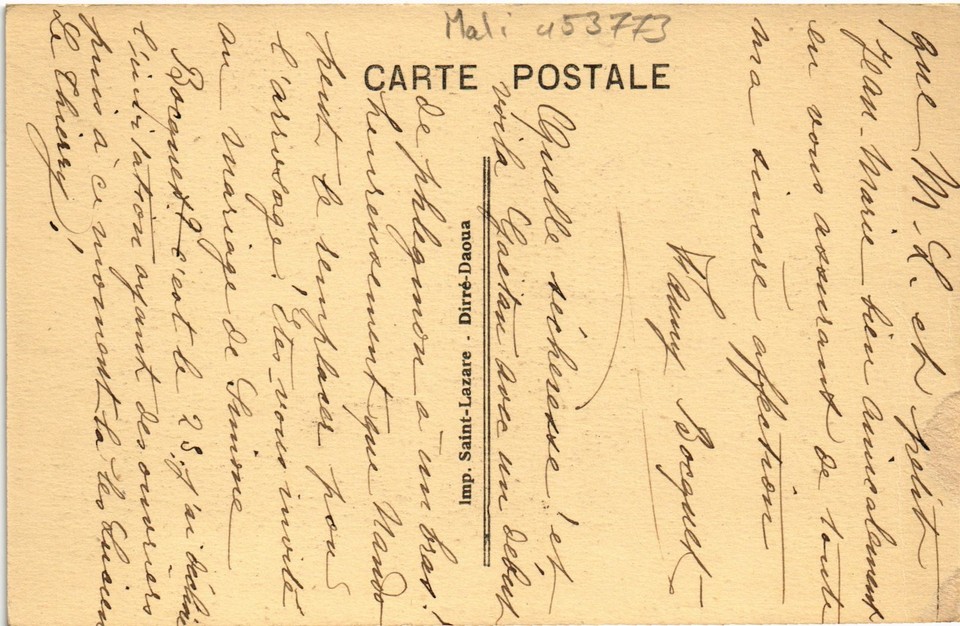 Mali 453773
CARTE POSTALE
Imp. Saint-Lazare - Dirré-Daoua
que M. L. et petit
Jean-Marie bien amicalement
en vous assurant de toute
ma sincère affection
Fanny Bocquet
Quelle sécheresse ! et
voilà Gaëtan avec un début
de phlegmon à un bras !
heureusement que Nando
peut le remplacer pour
l'arrosage ! Etes-vous invité
au mariage de Simone
Bocquet ? c'est le 25. J'ai décliné
l'invitation ayant des ouvriers
puis à ce moment-là les Lucien
Le Thierry !